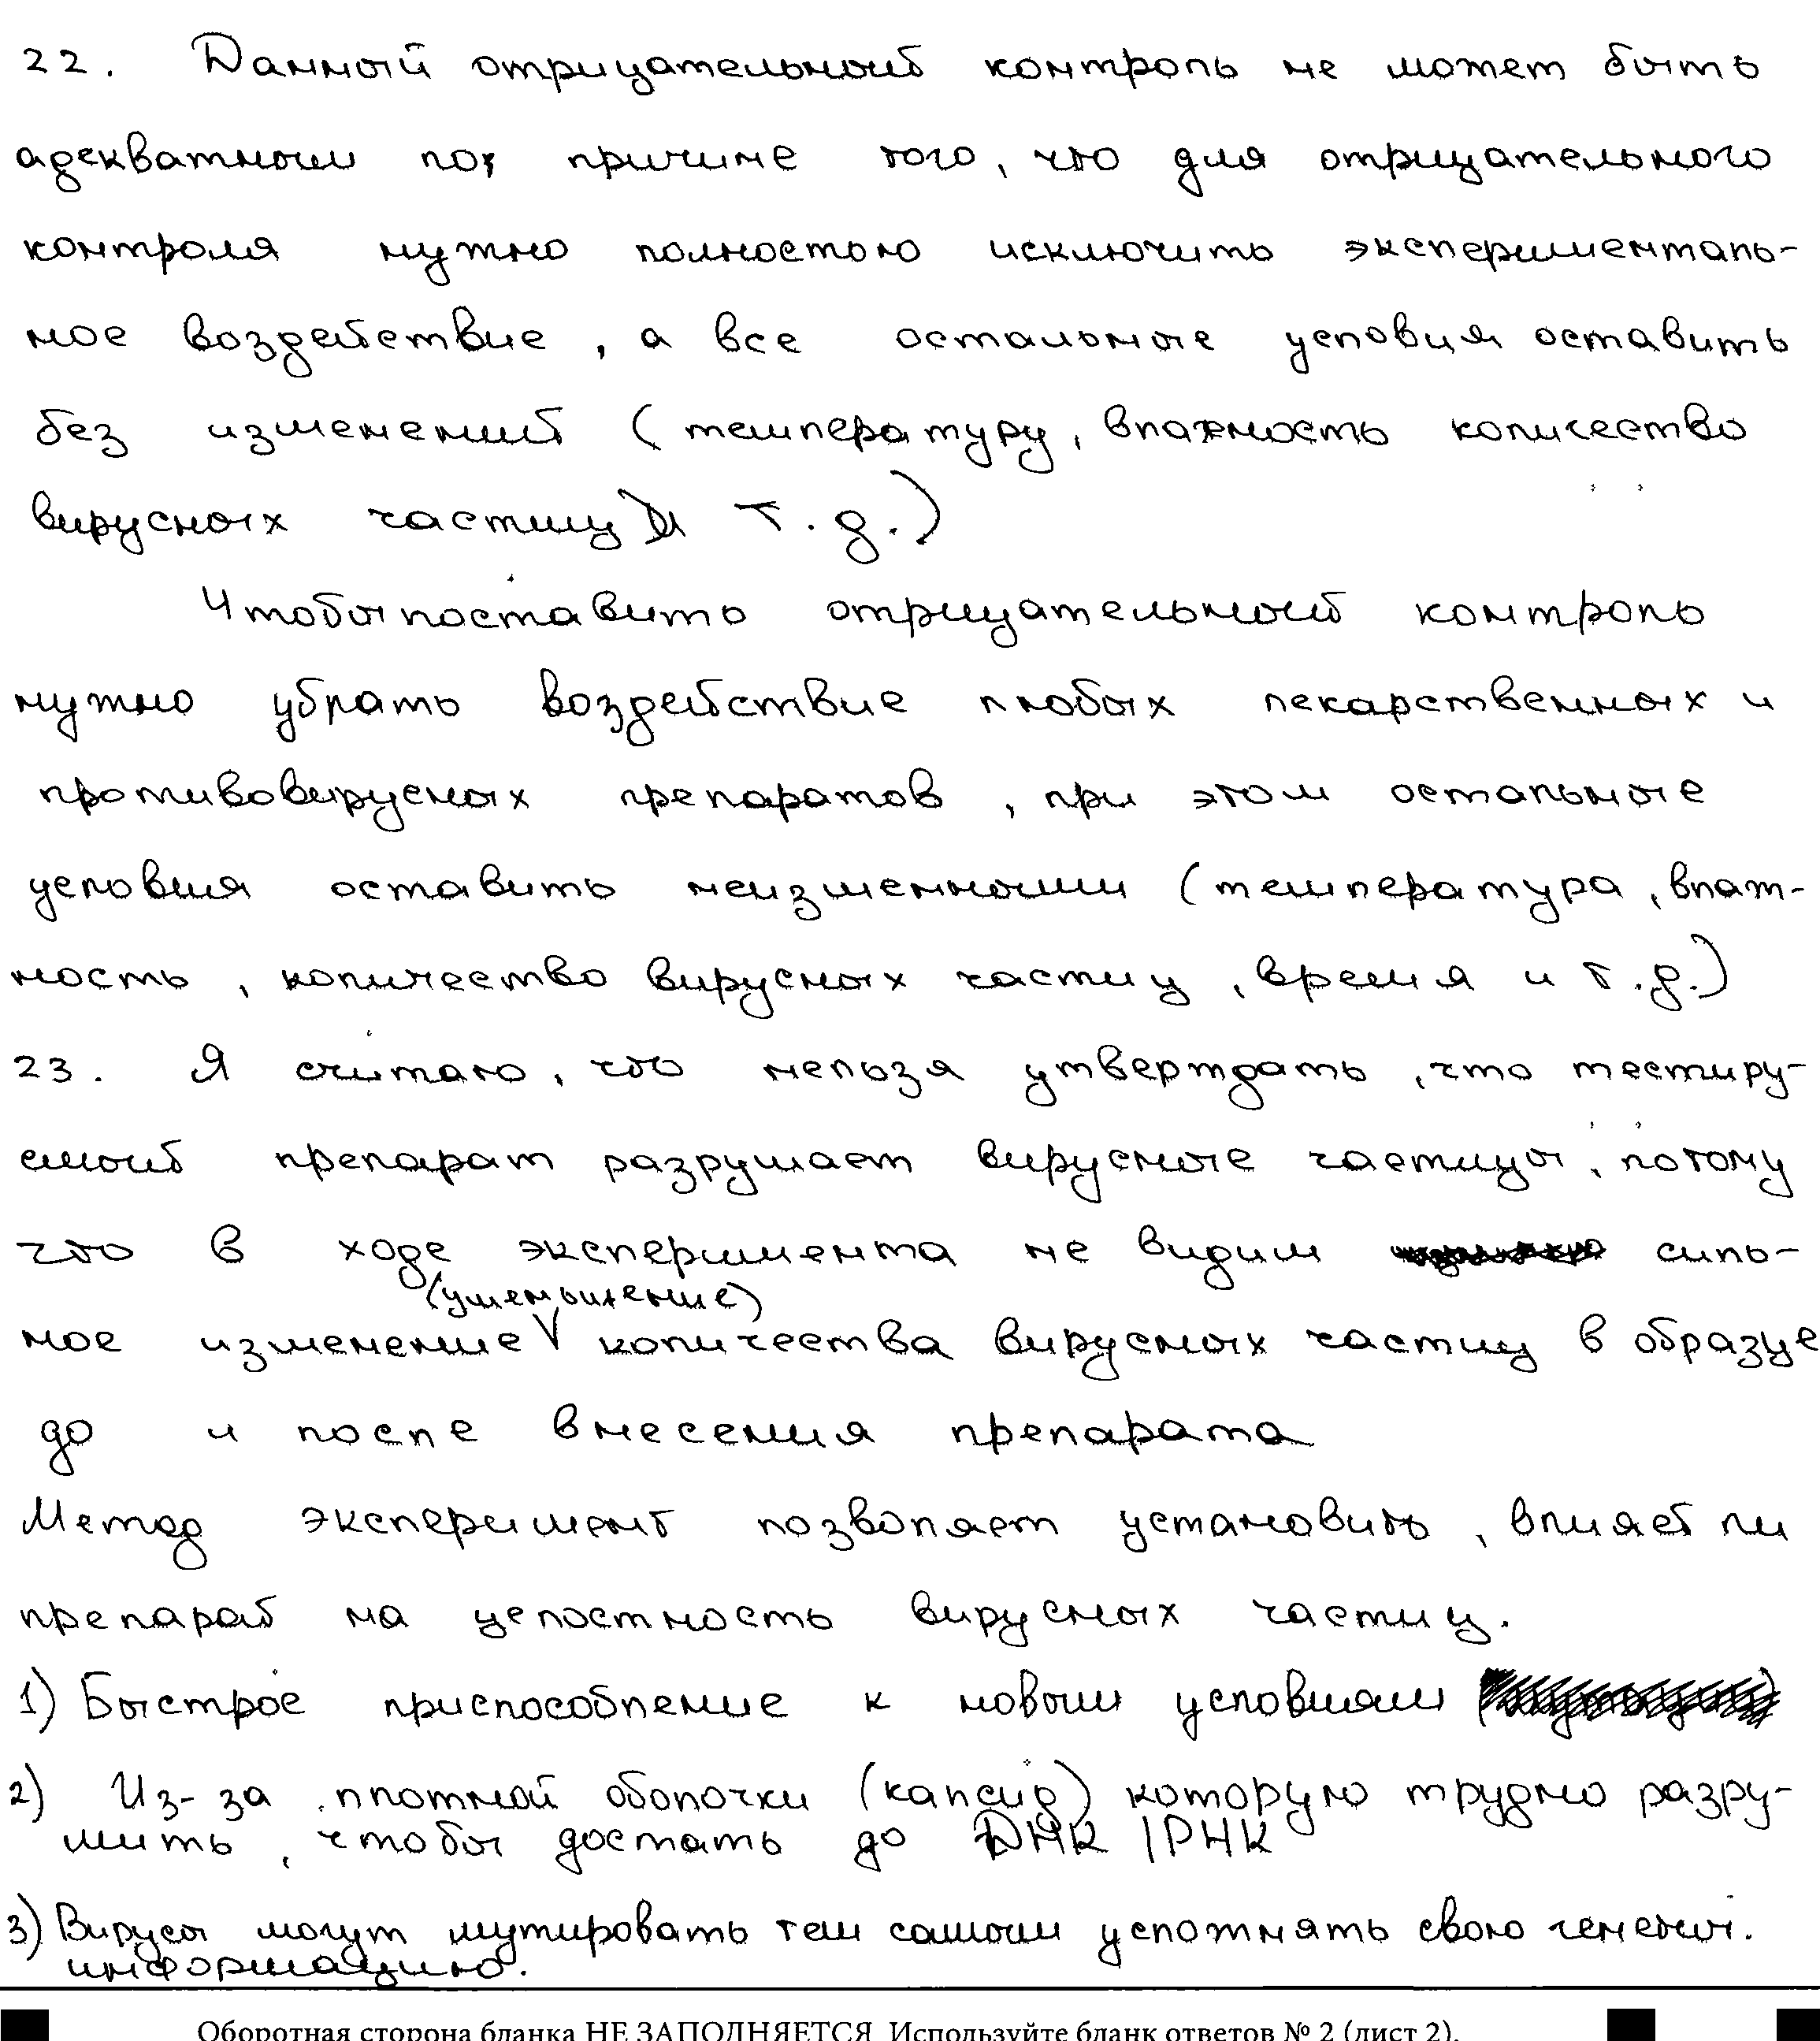 22. Данный отрицательный контроль не может быть
адекватным по причине того, что для отрицательного
контроля нужно полностью исключить эксперименталь-
ное воздействие, а все остальные условия оставить
без изменений (температуру, влажность количество
вирусных частиц и т.д.)
Чтобы поставить отрицательный контроль
нужно убрать воздействие любых лекарственных и
противовирусных препаратов, при этом остальные
условия оставить неизменными (температура, влаж-
ность, количество вирусных частиц, время и т.д.)
23. Я считаю, что нельзя утверждать, что тестиру-
емый препарат разрушает вирусные частицы, потому
что в ходе эксперимента не видим силь-
(уменьшение)
ное изменение V количества вирусных частиц в образце
до и после внесения препарата
Метод эксперимент позволяет установить, влияет ли
препарат на целостность вирусных частиц.
1) Быстрое приспособление к новым условиям
2) Из-за плотной оболочки (капсид) которую трудно разру-
шить, чтобы достать до ДНК/РНК
3) Вирусы могут мутировать тем самым усложнять свою генетич.
информацию.
Оборотная сторона бланка НЕ ЗАПОЛНЯЕТСЯ. Используйте бланк ответов № 2 (лист 2).